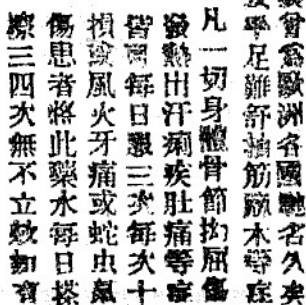 會為歐洲各國馳名久
手足難舒抽筋麻木等症
凡一切身體骨節拘屈傷
發熱出汗痢疾肚痛等症
皆可每日服三次每次十
損瘀風火牙痛或蛇虫鼠
傷患者將此藥水每日搽
擦三四次無不立效如有